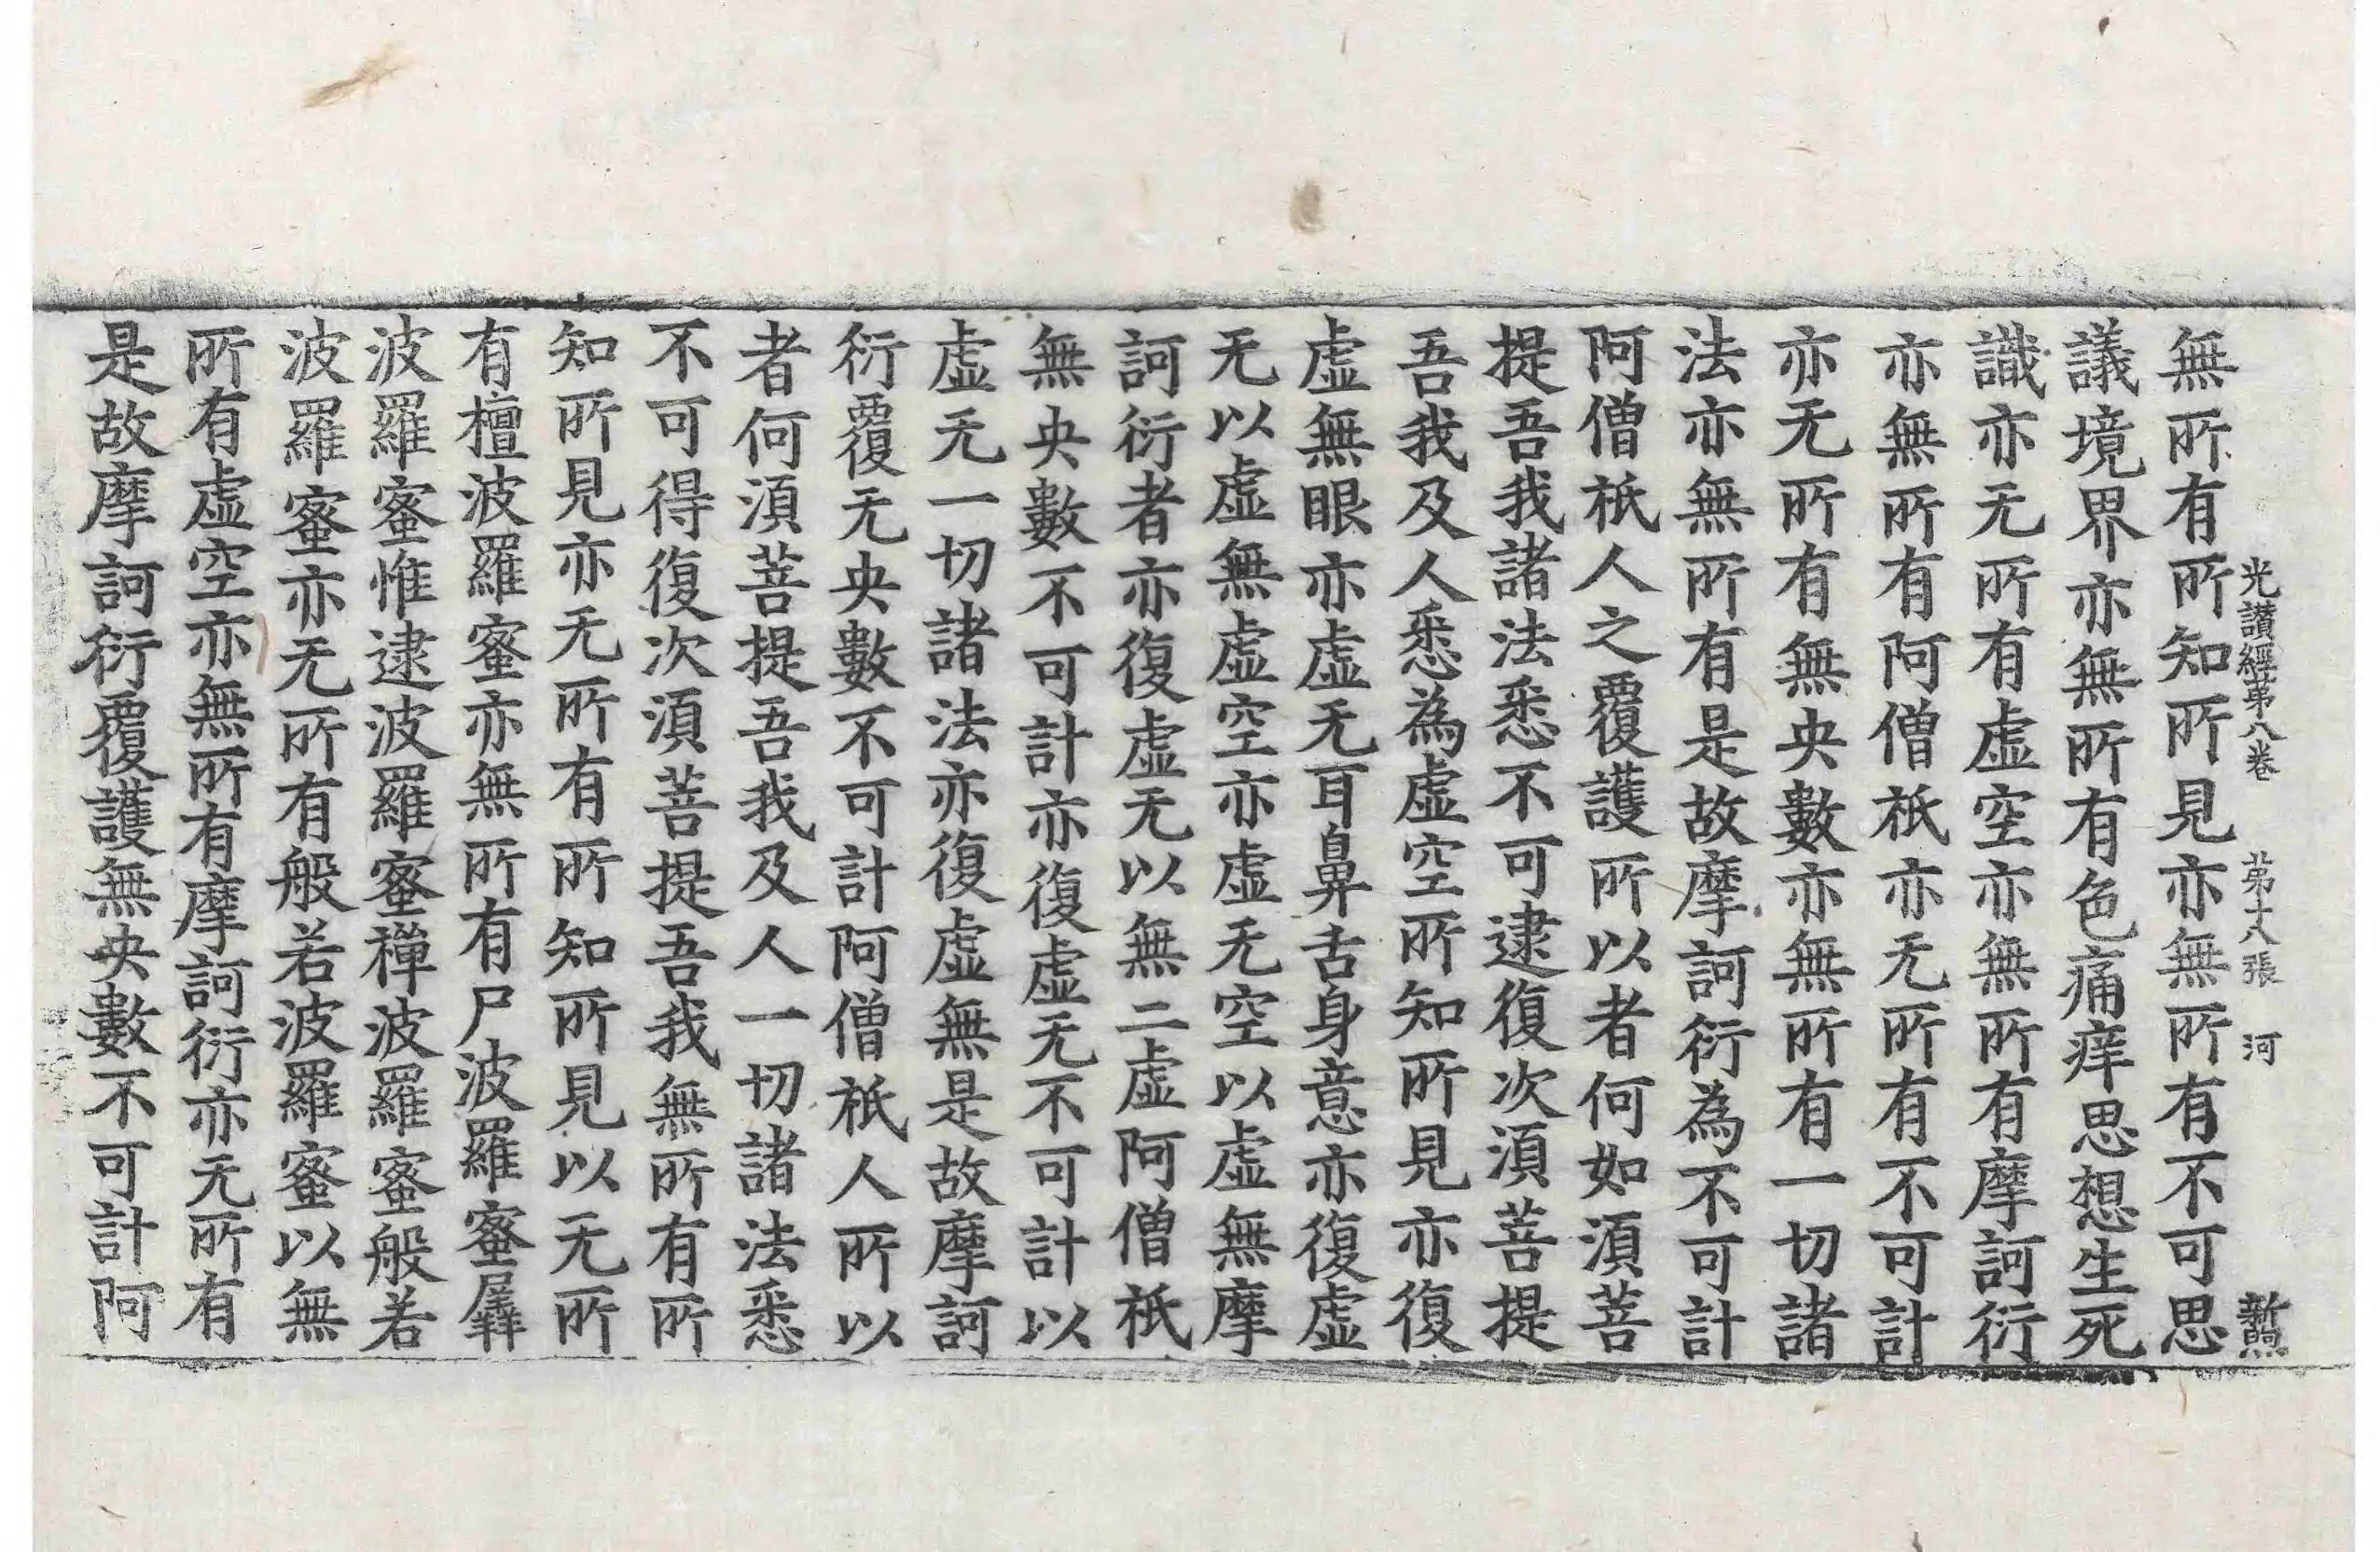 光讃經苐八卷 苐十八張 河
無所有所知所見亦無所有不可思
議境界亦無所有色痛痒思想生死
識亦无所有虛空亦無所有摩訶衍
亦無所有阿僧祇亦无所有不可計
亦无所有無央數亦無所有一切諸
法亦無所有是故摩訶衍為不可計
阿僧祇人之覆護所以者何如湏菩
提吾我諸法悉不可逮復次湏菩提
吾我及人悉為虛空所知所見亦復
虛無眼亦虛无耳鼻舌身意亦復虛
无以虛無虛空亦虛无空以虛無摩
訶衍者亦復虛无以無二虛阿僧祇
無央數不可計亦復虛无不可計以
虛无一切諸法亦復虛無是故摩訶
衍覆无央數不可計阿僧祇人所以
者何湏菩提吾我及人一切諸法悉
不可得復次湏菩提吾我無所有所
知所見亦无所有所知所見以无所
有檀波羅蜜亦無所有尸波羅蜜羼
波羅蜜惟逮波羅蜜禪波羅蜜般若
波羅蜜亦无所有般若波羅蜜以無
所有虛空亦無所有摩訶衍亦无所有
是故摩訶衍覆護無央數不可計阿